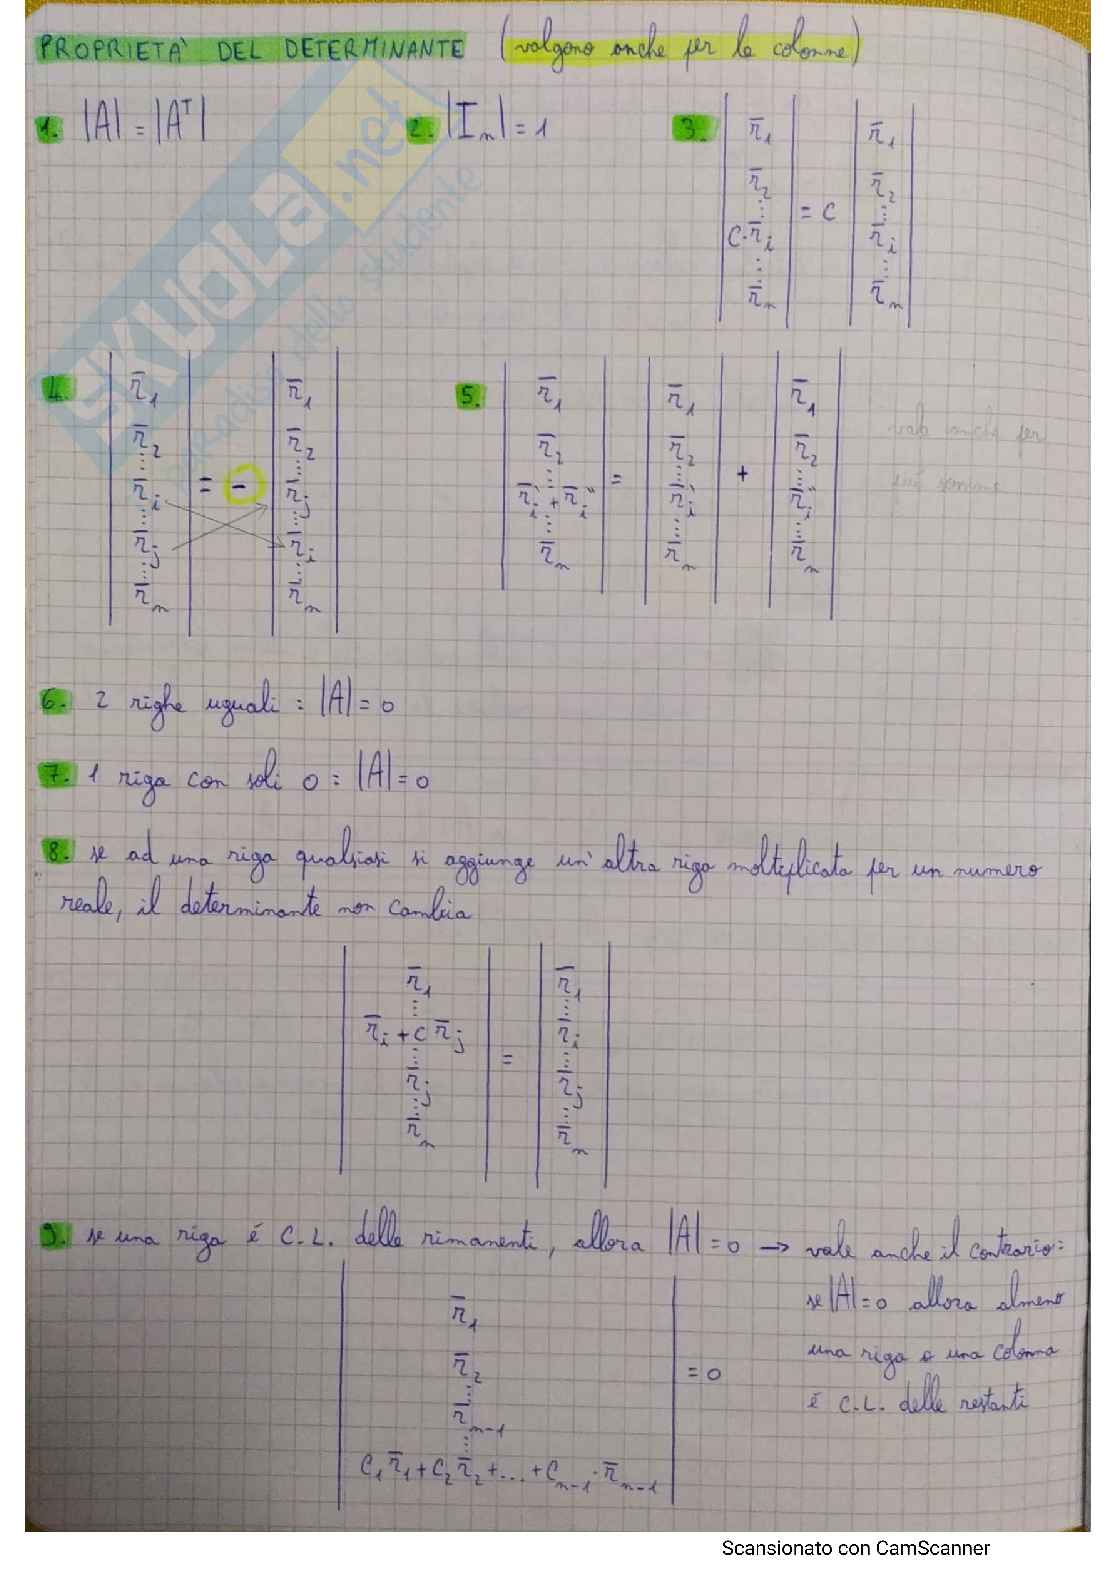 PROPRIETA' DEL DETERMINANTE (valgono anche per le colonne)
1. |A| = |Aᵀ|
2. |Iₙ| = 1
3. | r̄₁ r̄₂ ⋮ c·r̄ᵢ ⋮ r̄ₙ | = c | r̄₁ r̄₂ ⋮ r̄ᵢ ⋮ r̄ₙ |
4. | r̄₁ r̄₂ ⋮ r̄ᵢ ⋮ r̄ⱼ ⋮ r̄ₙ | = - | r̄₁ r̄₂ ⋮ r̄ⱼ ⋮ r̄ᵢ ⋮ r̄ₙ |
5. | r̄₁ r̄₂ ⋮ r̄ᵢ' + r̄ᵢ'' ⋮ r̄ₙ | = | r̄₁ r̄₂ ⋮ r̄ᵢ' ⋮ r̄ₙ | + | r̄₁ r̄₂ ⋮ r̄ᵢ'' ⋮ r̄ₙ |
vale anche per
più somme
6. 2 righe uguali : |A| = 0
7. 1 riga con soli 0 : |A| = 0
8. se ad una riga qualsiasi si aggiunge un'altra riga moltiplicata per un numero
reale, il determinante non cambia
| r̄₁ ⋮ r̄ᵢ + c r̄ⱼ ⋮ r̄ⱼ ⋮ r̄ₙ | = | r̄₁ ⋮ r̄ᵢ ⋮ r̄ⱼ ⋮ r̄ₙ |
9. se una riga é C.L. delle rimanenti, allora |A| = 0 → vale anche il contrario:
se |A| = 0 allora almeno
una riga o una colonna
é C.L. delle restanti
| r̄₁ r̄₂ ⋮ r̄ₙ₋₁ ⋮ c₁r̄₁ + c₂r̄₂ + ... + cₙ₋₁·r̄ₙ₋₁ | = 0
SKUOLA.net
paradiso dello studente
Scansionato con CamScanner